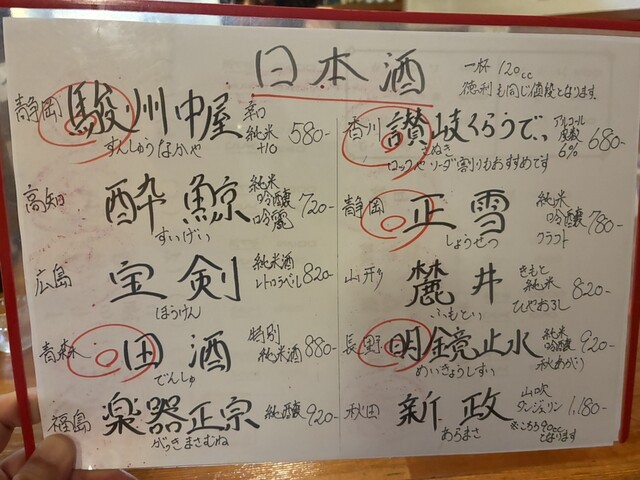 日本酒
一杯 120cc
徳利も同じ値段となります。
静岡 駿州中屋 辛口 純米 +10 580-
すんしゅうなかや
高知 酔鯨 純米 吟醸 吟麗 720-
すいげい
広島 宝剣 純米酒 レトロラベル 820-
ほうけん
青森 田酒 特別 純米酒 880-
でんしゅ
福島 楽器正宗 純醸 920-
がっきまさむね
香川 讃岐くらうでぃ アルコール 度数 6% 680-
さぬき
ロックやソーダ割りもおすすめです
静岡 正雪 純米 吟醸 クラフト 780-
しょうせつ
麓井 きもと 純米 ひやおろし 820-
ふもとい
長野 明鏡止水 純米 吟醸 秋あがり 920-
めいきょうしすい
秋田 新政 山吹 タンジェリン 1,180-
あらまさ
※こちら90ccとなります